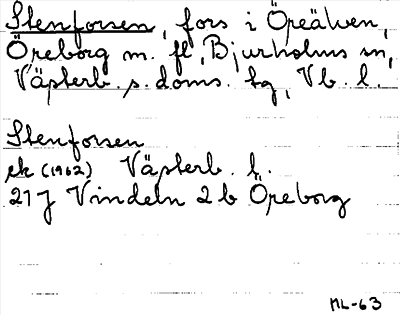 Stenforsen, fors i Öreälven,
Öreborg m. fl, Bjurholms sn,
Västerb. s. doms. tg, Vb. l.
Stenforsen
ek (1962) Västerb. l.
21 J Vindeln 2 b Öreborg
ML-63